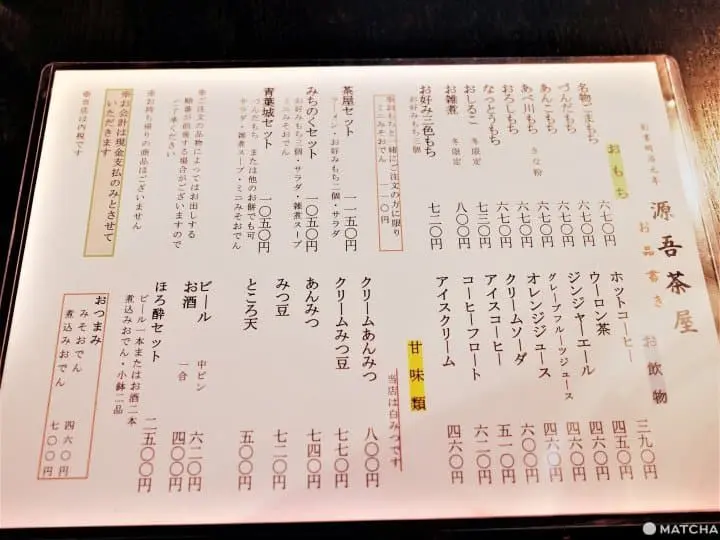 創業明治元年
源吾茶屋
お品書き
おもち
名物ごまもち 六七〇円
づんだもち 六七〇円
あんこもち 六七〇円
あべ川もち きな粉 六七〇円
おろしもち 六七〇円
なっとうもち 六七〇円
おしるこ 冬限定 七三〇円
お雑煮 冬限定 八〇〇円
お好み三色もち 七二〇円
お好みもち三個
※おもちと一緒にご注文の方に限り
ミニみそおでん 一一〇円
茶屋セット 一一五〇円
ラーメン・お好みもち二個・サラダ
みちのくセット 一一五〇円
お好みもち三個・サラダ・雑煮スープ
ミニみそおでん
青葉城セット 一〇五〇円
づんだもち または他のお餅でも可
サラダ・雑煮スープ・ミニみそおでん
※ご注文の品物によってはお出しする
順番が前後する場合がございますので
ご了承ください
※お持ち帰りの商品はございません
※お会計は現金支払のみとさせて
いただきます
※当店は内税です
お飲物
ホットコーヒー 三九〇円
ウーロン茶 四五〇円
ジンジャーエール 四六〇円
グレープフルーツジュース 四六〇円
オレンジジュース 四六〇円
クリームソーダ 六〇〇円
アイスコーヒー 五一〇円
コーヒーフロート 六二〇円
アイスクリーム 四六〇円
甘味類
当店は白みつです
クリームあんみつ 八〇〇円
クリームみつ豆 七七〇円
あんみつ 七四〇円
みつ豆 七二〇円
ところ天 五〇〇円
ビール 中ビン 六二〇円
お酒 一合 四〇〇円
ほろ酔セット 二五〇〇円
ビール一本またはお酒二本
煮込みおでん・小鉢二品
おつまみ
みそおでん 四六〇円
煮込みおでん 七〇〇円
MATCHA